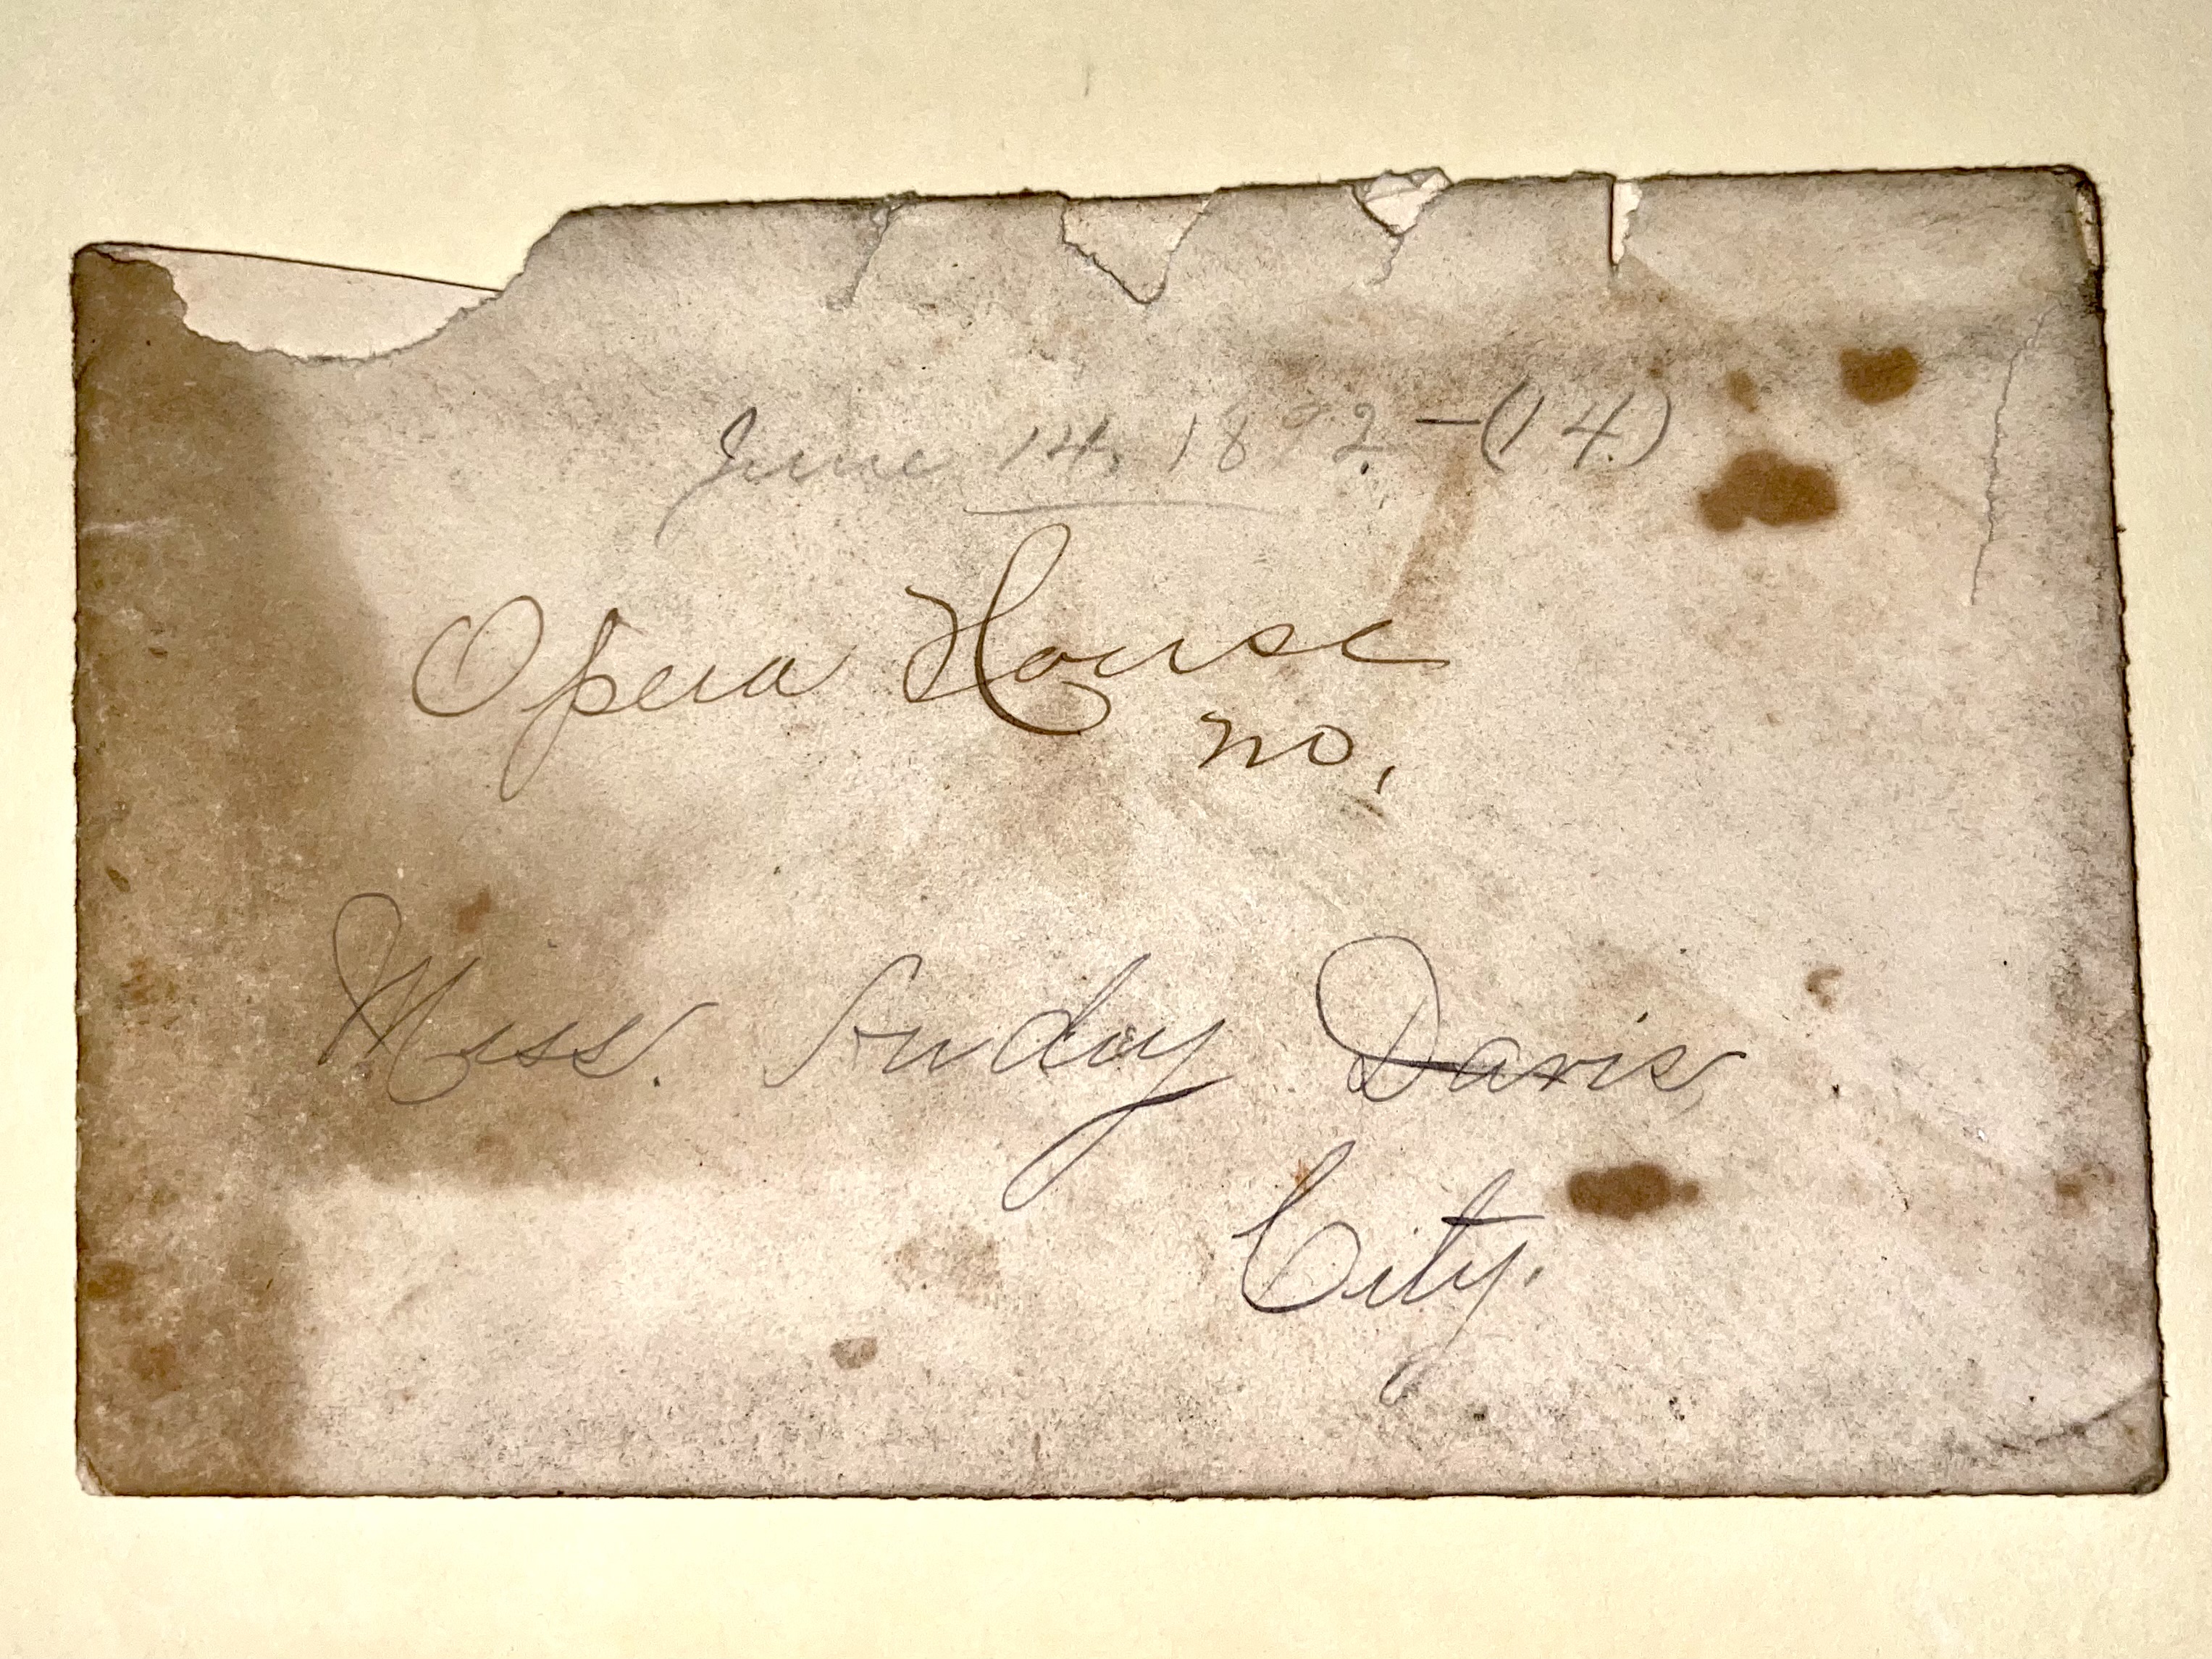 June 14, 1892 - (14)
Opera House
no.
Miss. Davis,
City.